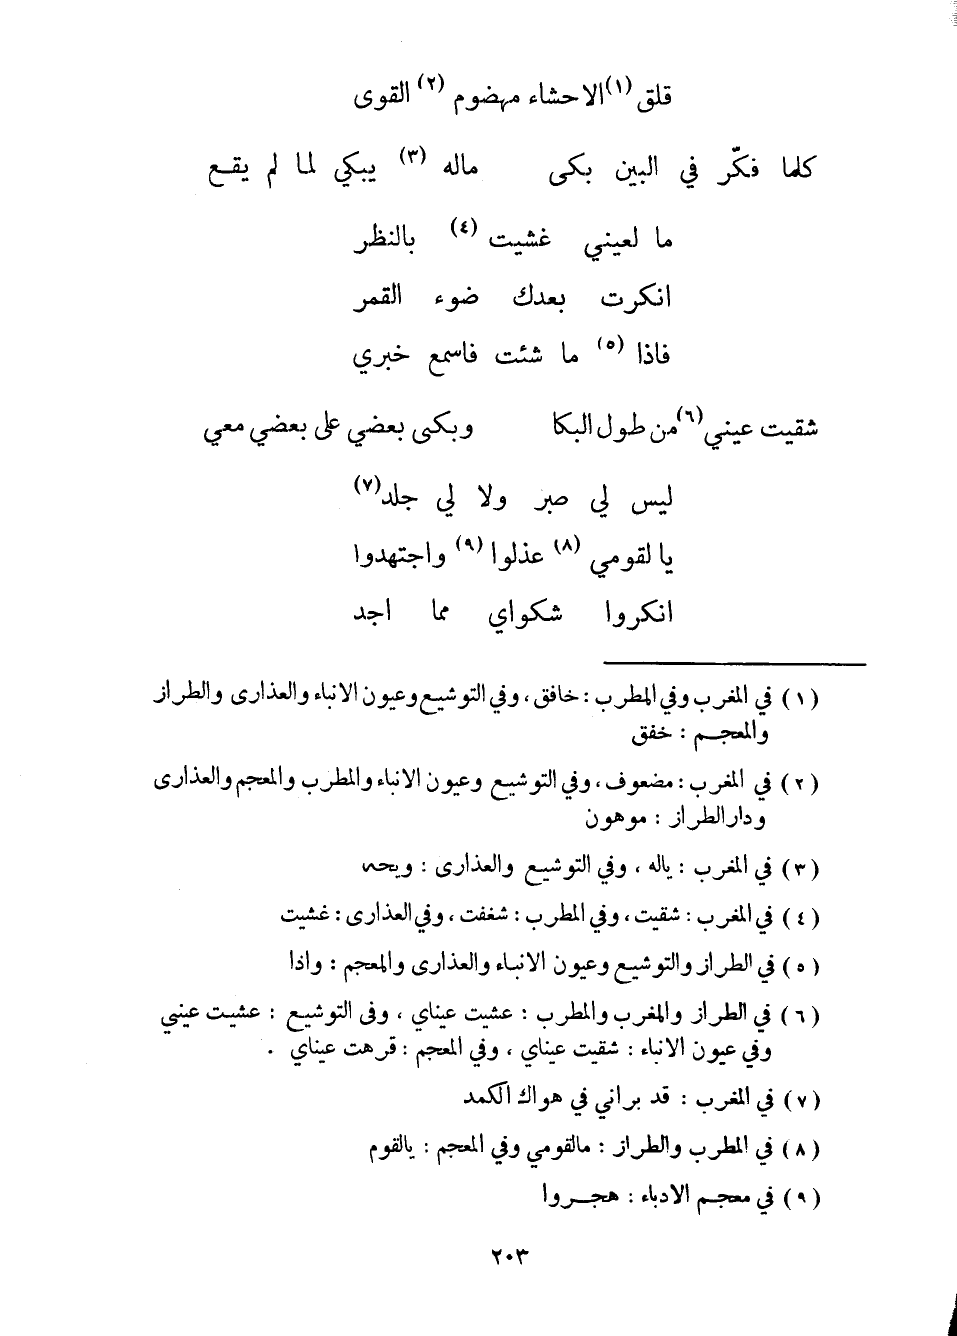 قلق (١) الاحشاء مهضوم (٢) القوى
كلما فكّر في البين بكى ماله (٣) يبكي لما لم يقع
ما لعيني غشيت (٤) بالنظر
انكرت بعدك ضوء القمر
فاذا (٥) ما شئت فاسمع خبري
شقيت عيني (٦) من طول البكا وبكى بعضي على بعضي معي
ليس لي صبر ولا لي جلد (٧)
يا لقومي (٨) عذلوا (٩) واجتهدوا
انكروا شكواي مما اجد
(١) في المغرب وفي المطرب : خافق ، وفي التوشيع وعيون الانباء والعذارى والطراز
والمعجم : خفق
(٢) في المغرب : مضعوف ، وفي التوشيع وعيون الانباء والمطرب والمعجم والعذارى
ودار الطراز : موهون
(٣) في المغرب : ياله ، وفي التوشيع والعذارى : ويحه
(٤) في المغرب : شقيت ، وفي المطرب : شغفت ، وفي العذارى : غشيت
(٥) في الطراز والتوشيع وعيون الانباء والعذارى والمعجم : واذا
(٦) في الطراز والمغرب والمطرب : عشيت عيناي ، وفي التوشيع : عشيت عيني
وفي عيون الانباء : شقيت عيناي ، وفي المعجم : قرهت عيناي .
(٧) في المغرب : قد براني في هواك الكمد
(٨) في المطرب والطراز : مالقومي وفي المعجم : يالقوم
(٩) في معجم الادباء : هجروا
٢٠٣